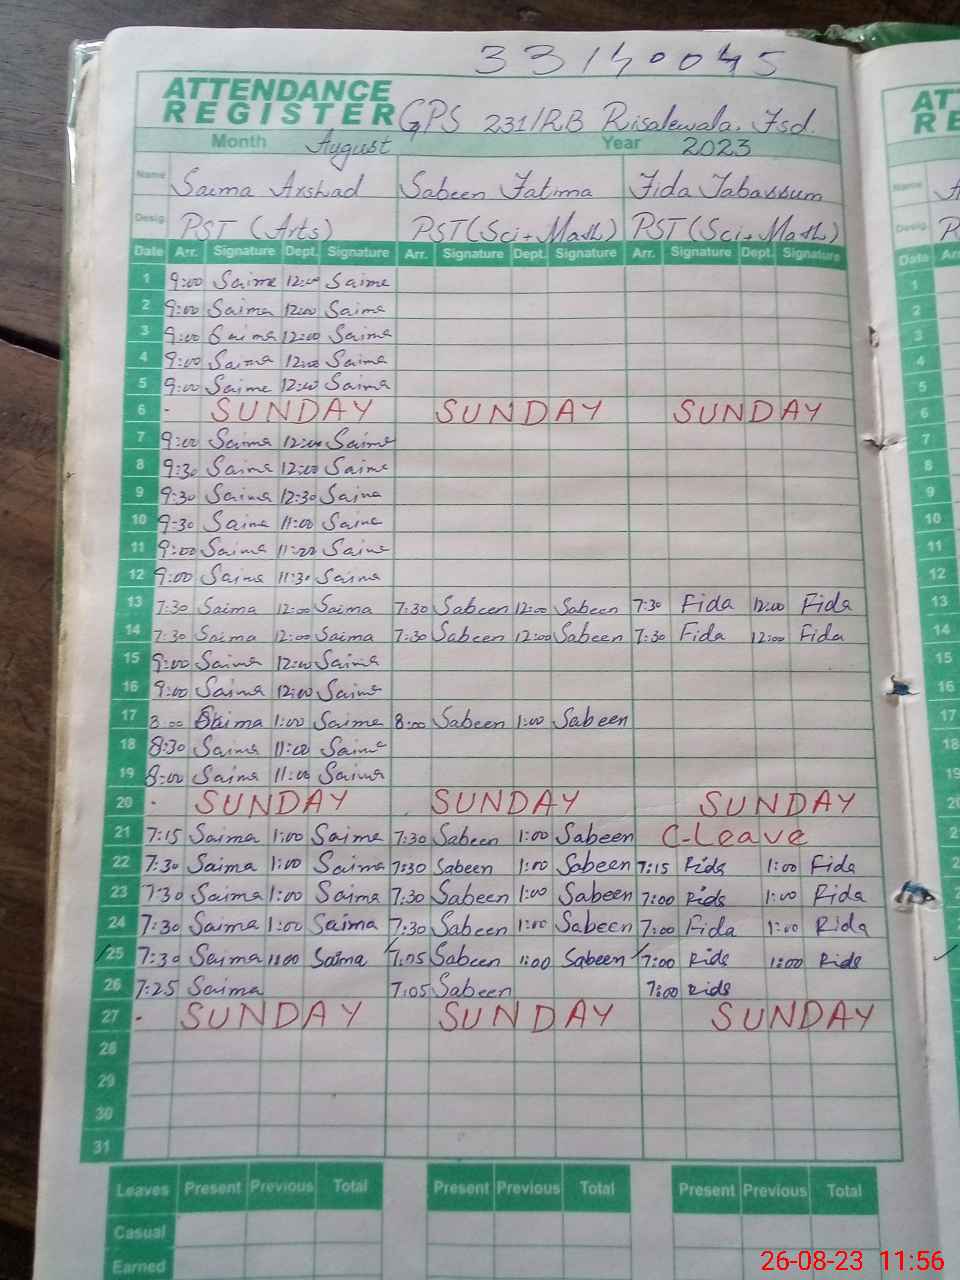 33140045
ATTENDANCE AT
REGISTER GPS 231/RB Risalewala. Fsd. RE
Month August Year 2023
Name Saima Arshad Sabeen Fatima Fida Tabassum Name
Desig. PST (Arts) PST(Sci+Math) PST(Sci+Math) Desig. P
Date Arr. Signature Dept. Signature Arr. Signature Dept. Signature Arr. Signature Dept. Signature Date Arr
1 9:00 Saima 12:00 Saima 1
2 9:00 Saima 12:00 Saima 2
3 9:00 Saima 12:00 Saima 3
4 9:00 Saima 12:00 Saima 4
5 9:00 Saima 12:00 Saima 5
6 SUNDAY SUNDAY SUNDAY 6
7 9:00 Saima 12:00 Saima 7
8 9:30 Saima 12:00 Saima 8
9 9:30 Saima 12:30 Saima 9
10 9:30 Saima 11:00 Saima 10
11 9:00 Saima 11:00 Saima 11
12 9:00 Saima 11:30 Saima 12
13 7:30 Saima 12:00 Saima 7:30 Sabeen 12:00 Sabeen 7:30 Fida 12:00 Fida 13
14 7:30 Saima 12:00 Saima 7:30 Sabeen 12:00 Sabeen 7:30 Fida 12:00 Fida 14
15 9:00 Saima 12:00 Saima 15
16 9:00 Saima 12:00 Saima 16
17 8:00 Saima 1:00 Saima 8:00 Sabeen 1:00 Sabeen 17
18 8:30 Saima 11:00 Saima 18
19 8:00 Saima 11:00 Saima 19
20 SUNDAY SUNDAY SUNDAY 2
21 7:15 Saima 1:00 Saima 7:30 Sabeen 1:00 Sabeen C-Leave 2
22 7:30 Saima 1:00 Saima 7:30 Sabeen 1:00 Sabeen 7:15 Fida 1:00 Fida 2
23 7:30 Saima 1:00 Saima 7:30 Sabeen 1:00 Sabeen 7:00 Fida 1:00 Fida 2
24 7:30 Saima 1:00 Saima 7:30 Sabeen 1:00 Sabeen 7:00 Fida 1:00 Fida 2
25 7:30 Saima 11:00 Saima 7:05 Sabeen 1:00 Sabeen 7:00 Fida 1:00 Fida
26 7:25 Saima 7:05 Sabeen 7:00 Fida
27 SUNDAY SUNDAY SUNDAY
28
29
30
31
Leaves Present Previous Total Present Previous Total Present Previous Total
Casual
Earned
26-08-23 11:56